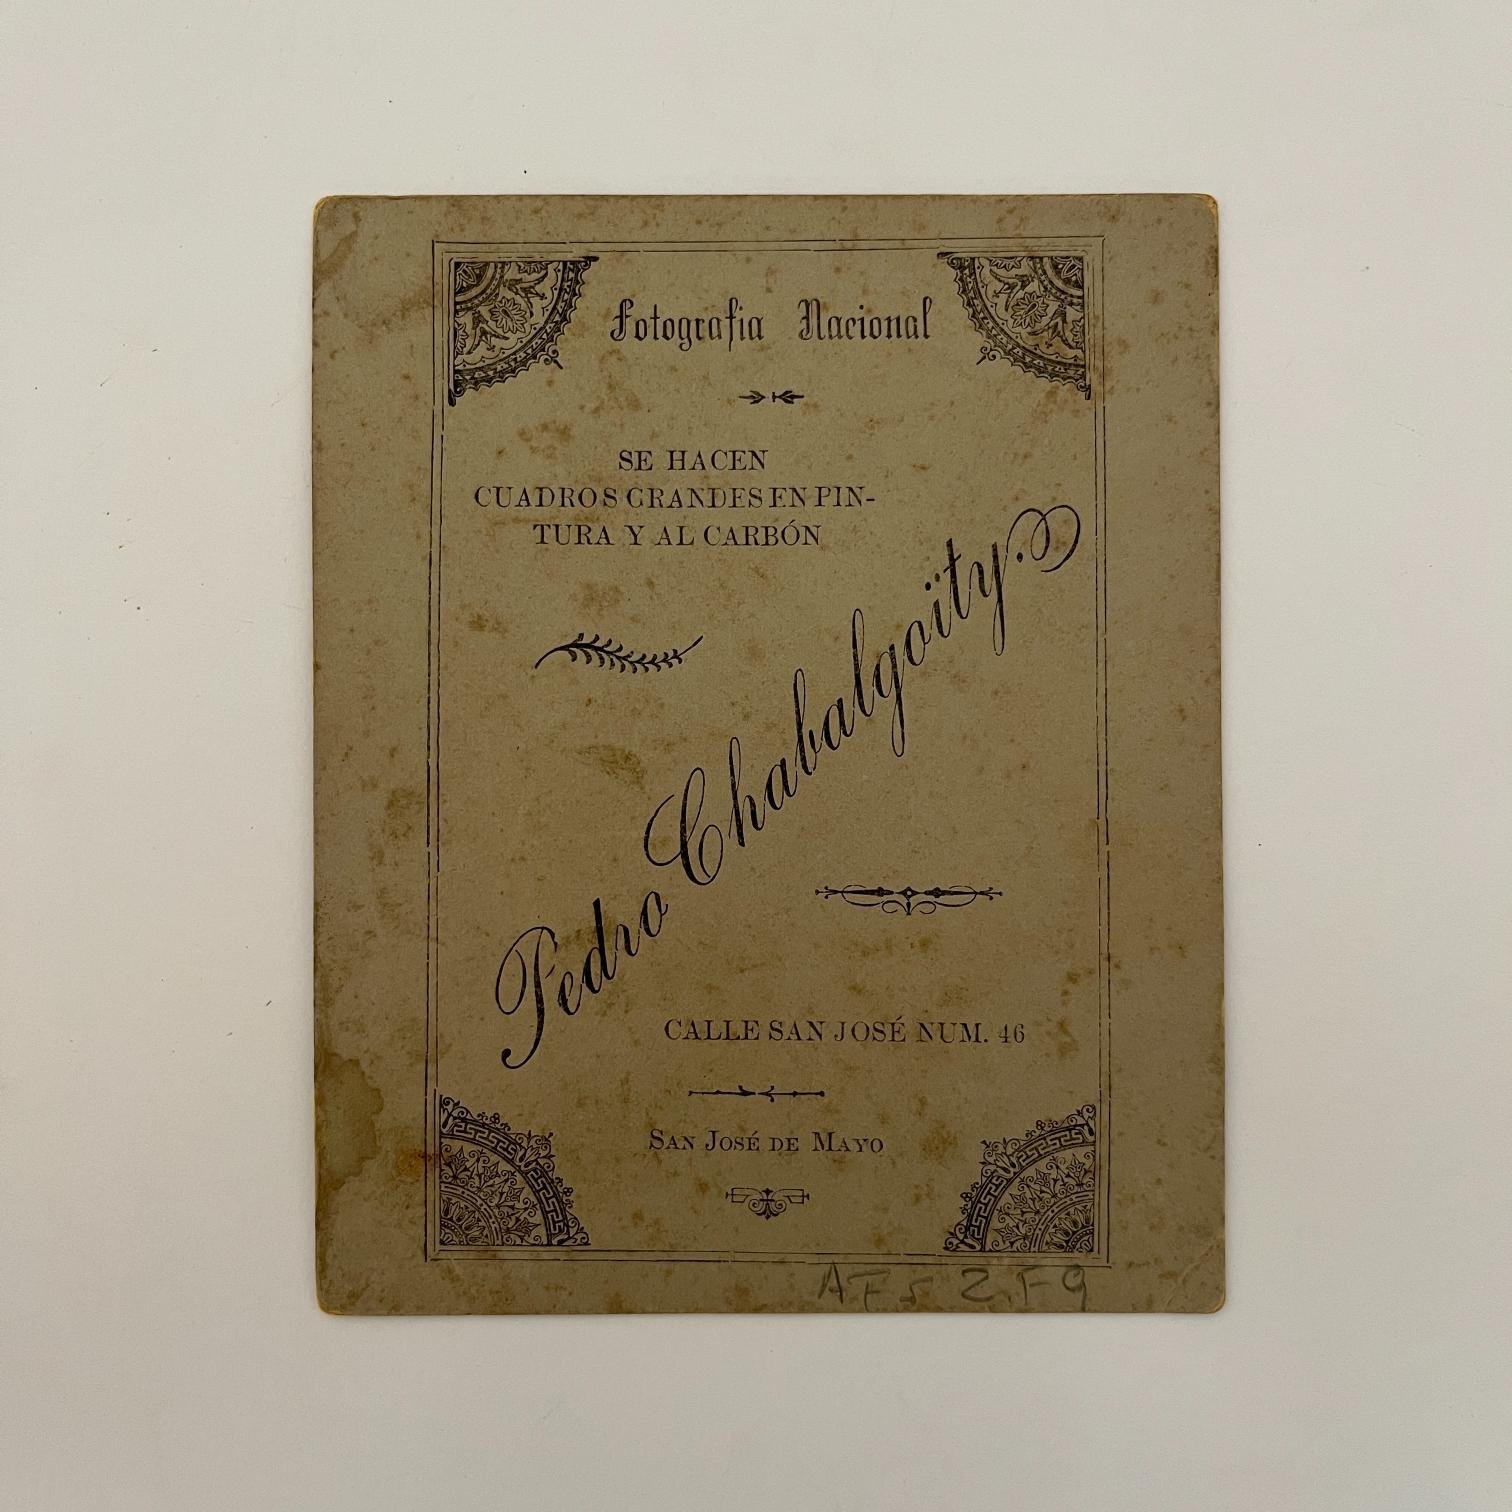 Fotografia Nacional
SE HACEN
CUADROS GRANDES EN PIN-
TURA Y AL CARBÓN
Pedro Chabalgoïty.
CALLE SAN JOSÉ NUM. 46
SAN JOSÉ DE MAYO